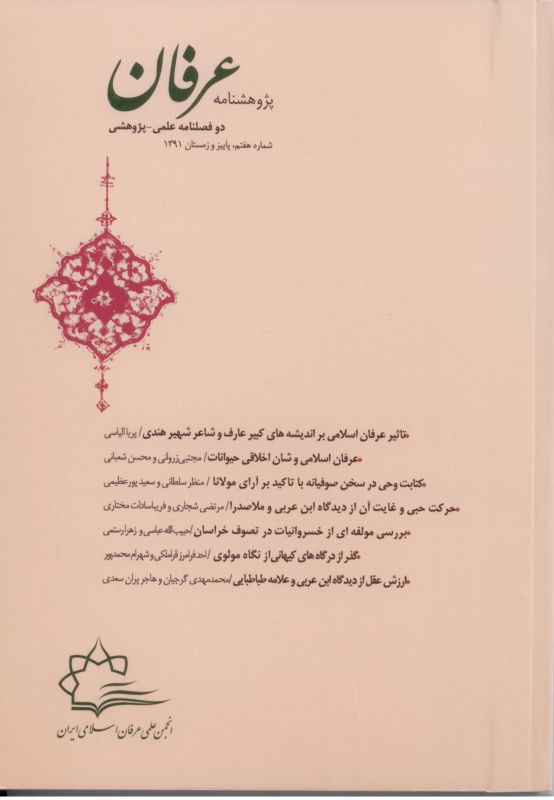 پژوهشنامه عرفان
دو فصلنامه علمی - پژوهشی
شماره هفتم، پاییز و زمستان ۱۳۹۱
•تاثیر عرفان اسلامی بر اندیشه های کبیر عارف و شاعر شهیر هندی/ پریا الیاسی
•عرفان اسلامی و شان اخلاقی حیوانات/ مجتبی زروانی و محسن شعبانی
•کتابت وحی در سخن صوفیانه با تاکید بر آرای مولانا / منظر سلطانی و سعید پورعظیمی
•حرکت حبی و غایت آن از دیدگاه ابن عربی و ملاصدرا/ مرتضی شجاری و فریباسادات مختاری
•بررسی مولفه ای از خسروانیات در تصوف خراسان/ حبیب‌الله عباسی و زهرا رستمی
•گذر از درگاه های کیهانی از نگاه مولوی / احد فرامرز قراملکی و شهرام محمدپور
•ارزش عقل از دیدگاه ابن عربی و علامه طباطبایی/ محمدمهدی گرجیان و هاجر پران سعدی
انجمن علمی عرفان اسلامی ایران